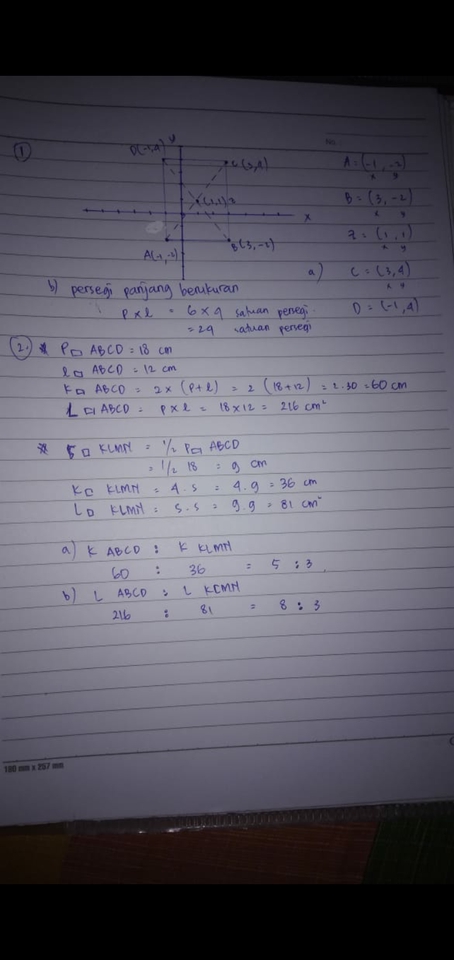 No.
1
y
D(-1,4)
C(3,4)
(1,1)
x
A(-1,-2)
B(3,-2)
A = (-1, -2)
x y
B = (3, -2)
x y
Z = (1, 1)
x y
a) C = (3,4)
x y
D = (-1,4)
b) persegi panjang berukuran
P x l = 6 x 4 satuan persegi
= 24 satuan persegi
2. * P▭ ABCD = 18 cm
l▭ ABCD = 12 cm
K▭ ABCD = 2x (P+l) = 2 (18+12) = 2.30 = 60 cm
L▭ ABCD = P x l = 18 x 12 = 216 cm²
* S▭ KLMN = 1/2 P▭ ABCD
= 1/2 18 = 9 cm
K▭ KLMN = 4.s = 4.9 = 36 cm
L▭ KLMN = s.s = 9.9 = 81 cm²
a) K ABCD : K KLMN
60 : 36 = 5 : 3
b) L ABCD : L KLMN
216 : 81 = 8 : 3